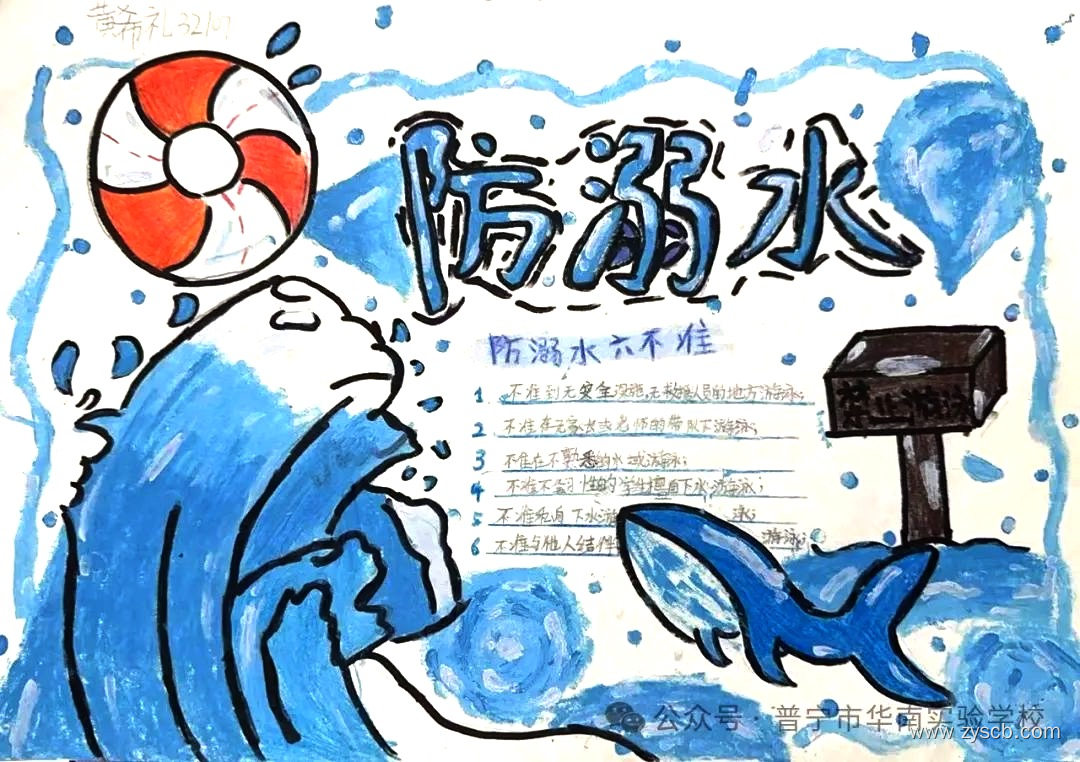 黄希礼
防溺水
防溺水六不准
1 不准到无安全设施,无救援人员的地方游泳;
2 不准在无家长或老师的带队下游泳;
3 不准在不熟悉的水域游泳;
4 不准不习性的学生擅自下水游泳;
5 不准私自下水游泳;
6 不准与他人结伴游泳;
禁止游泳
公众号·普宁市华南实验学校
www.zyscb.com